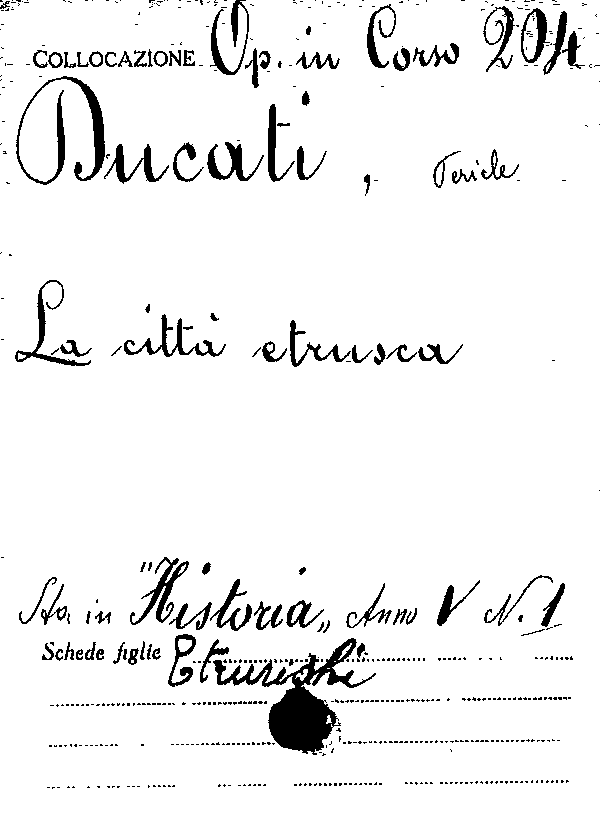 COLLOCAZIONE Op. in Corso 204
Ducati, Pericle
La città etrusca
Sta in "Historia„ Anno V N. 1
Schede figlie Etruschi